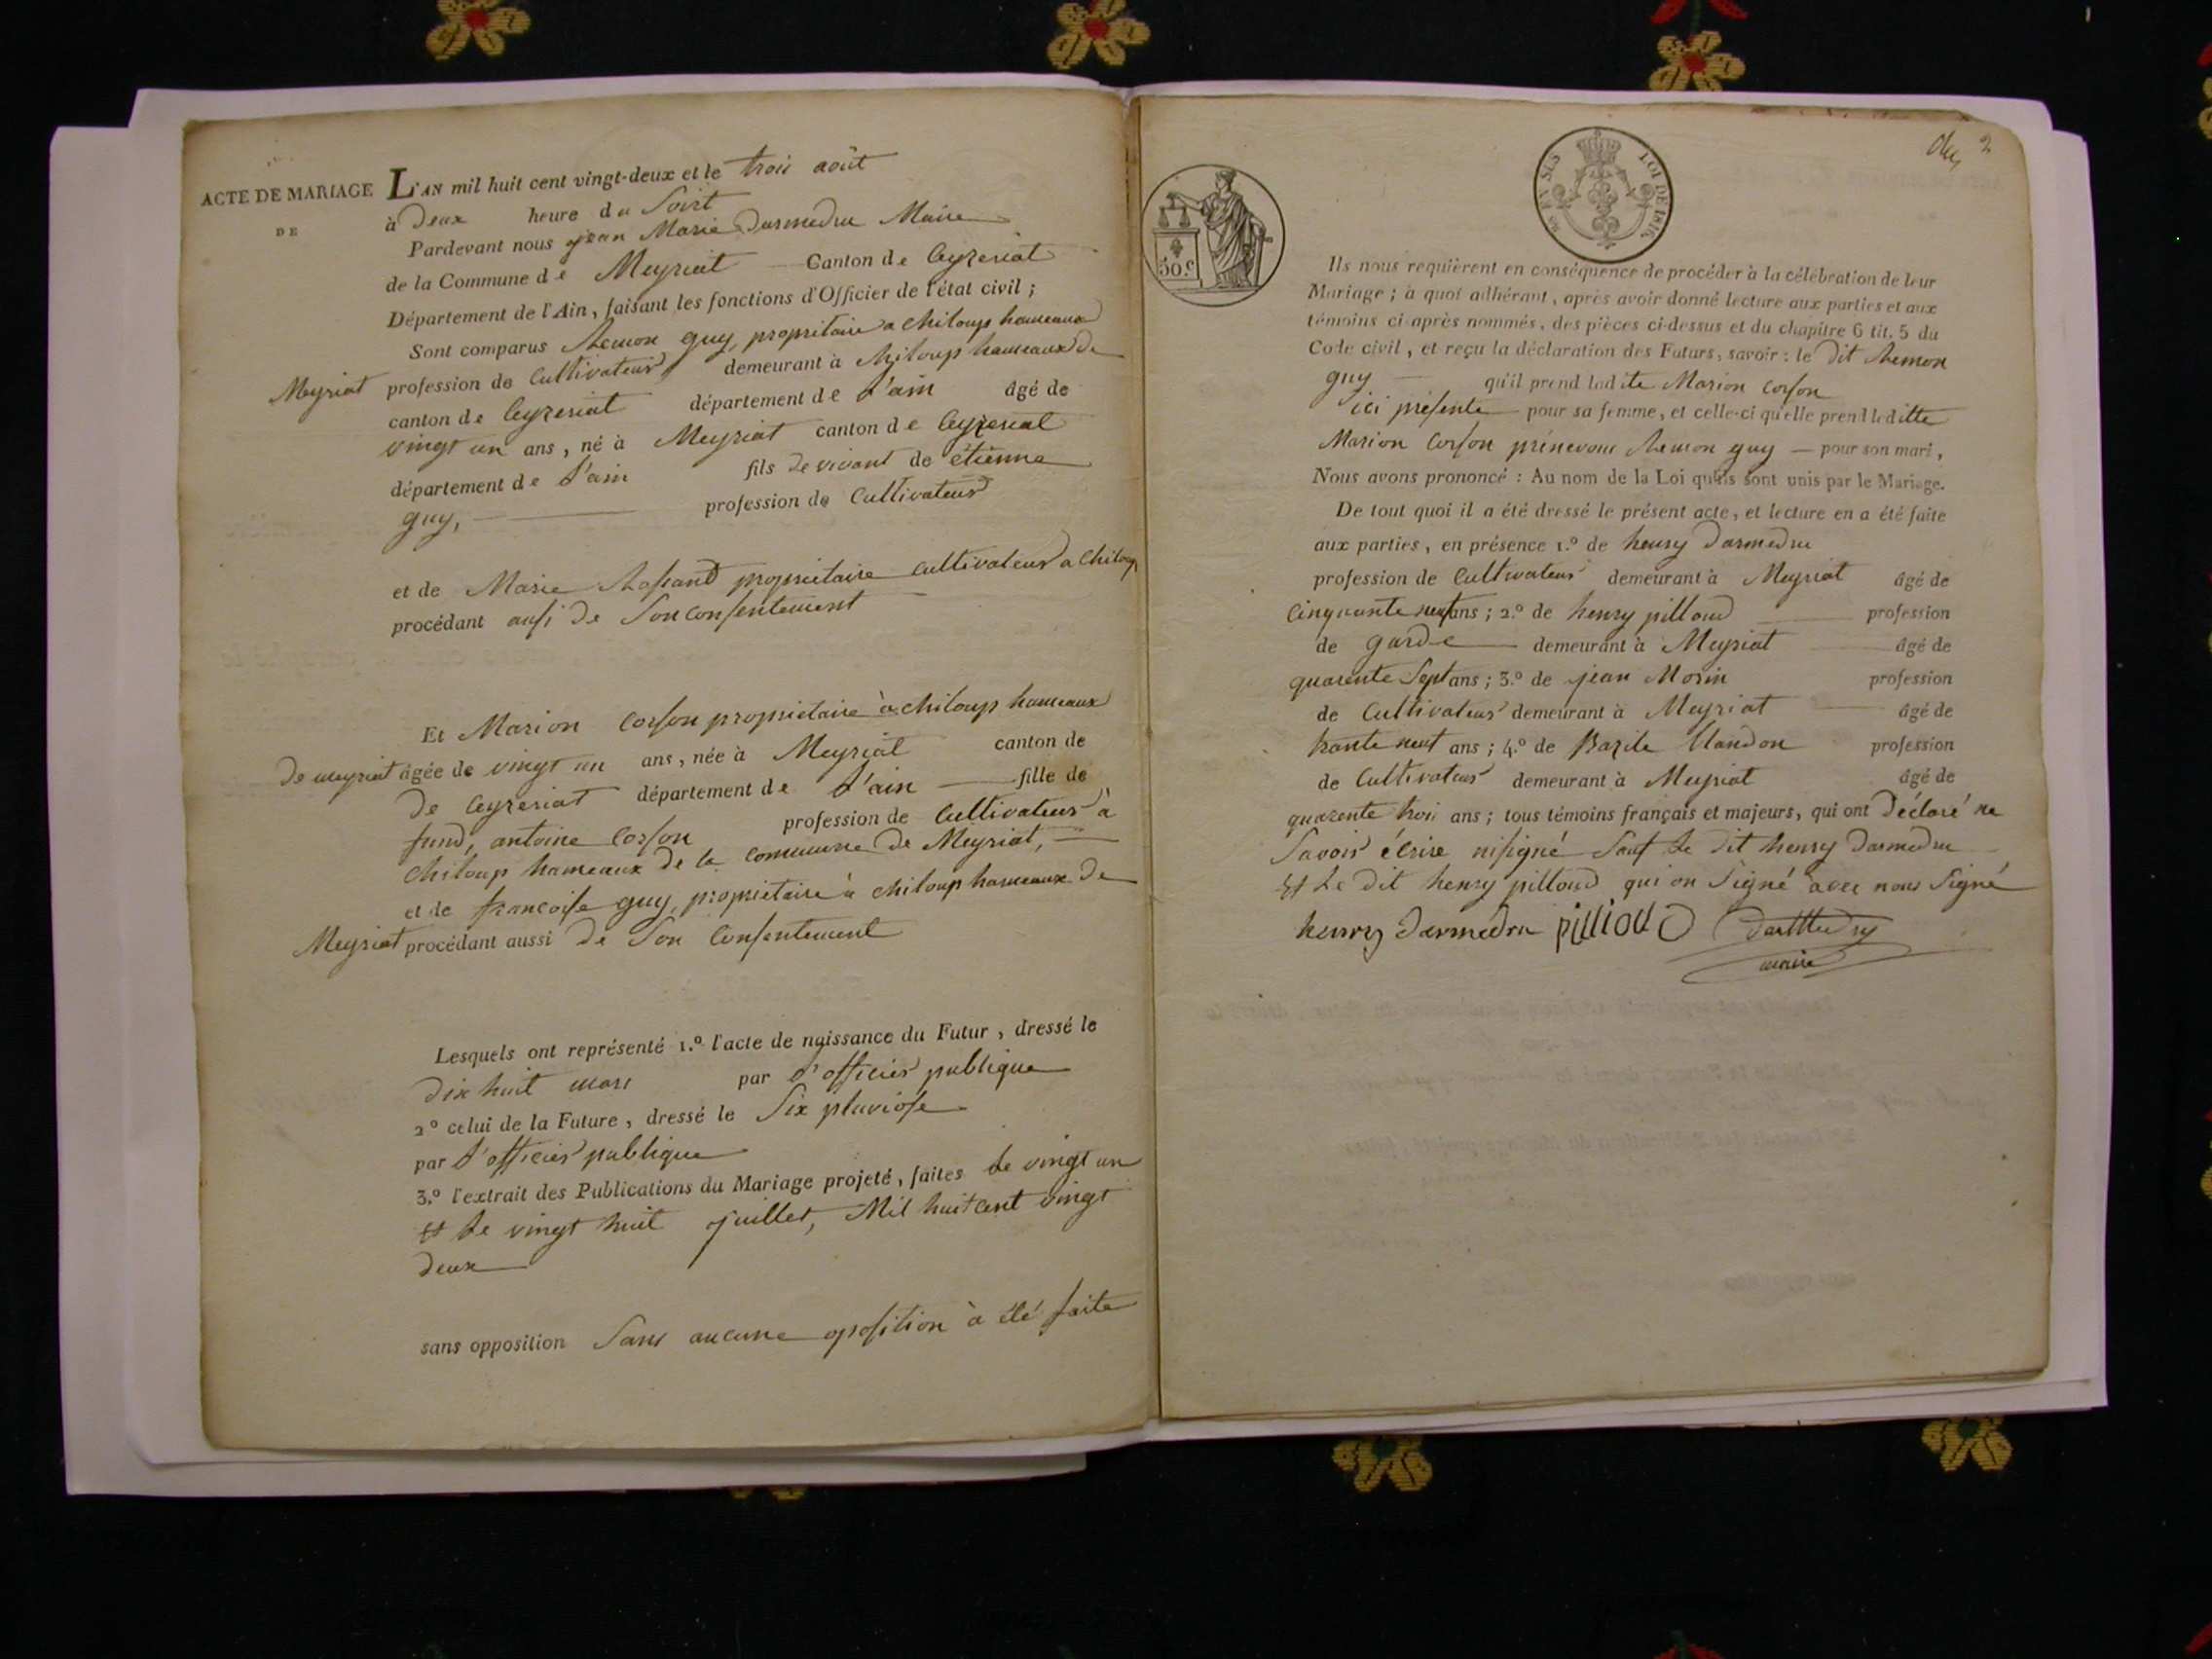 ACTE DE MARIAGE
DE
L'AN mil huit cent vingt-deux et le trois août
à deux heure du soirt
Pardevant nous jean Marie Darmedru Maire
de la Commune de Meyriat Canton de Ceyzeriat
Département de l'Ain, faisant les fonctions d'Officier de l'état civil ;
Sont comparus guy, propriétaire a chiloup hameaux
profession de Cultivateur, demeurant à chiloup hameaux de
Meyriat
canton de Ceyzeriat département de l'ain âgé de
vingt un ans, né à Meyriat canton de Ceyzeriat
département de l'ain fils de vivant de étienne
guy, profession de Cultivateur
et de Marie propriétaire cultivateur a chiloup
procédant ausi de Son consentement
Et Marion Corson propriétaire à chiloup hameaux
de meyriat âgée de vingt un ans, née à Meyriat canton de
de Ceyzeriat département de l'ain fille de
antoine Corson profession de Cultivateur à
chiloup hameaux de la commune de Meyriat,
et de francoise guy, propriétaire à chiloup hameaux de
Meyriat procédant aussi de Son Consentement
Lesquels ont représenté 1.º l'acte de naissance du Futur, dressé le
dix huit mars par l'officier publique
2º celui de la Future, dressé le Six pluviose
par l'officier publique
3.º l'extrait des Publications du Mariage projeté, faites le vingt un
Et le vingt huit juillet, Mil huit cent vingt
deux
sans opposition Sans aucune oposition à été faite
2
50 c
LOI DE 1816.
Ils nous requièrent en conséquence de procéder à la célébration de leur
Mariage ; à quoi adhérant, après avoir donné lecture aux parties et aux
témoins ci-après nommés, des pièces ci-dessus et du chapitre 6 tit. 5 du
Code civil, et reçu la déclaration des Futurs, savoir : le dit
guy qu'il prend ladite Marion Corson
ici présente pour sa femme, et celle-ci qu'elle prend leditte
Marion Corson guy pour son mari,
Nous avons prononcé : Au nom de la Loi qu'ils sont unis par le Mariage.
De tout quoi il a été dressé le présent acte, et lecture en a été faite
aux parties, en présence 1.º de henry Darmedru
profession de Cultivateur demeurant à Meyriat âgé de
Cinquante neuf ans ; 2.º de henry pilloud profession
de garde demeurant à Meyriat âgé de
quarente Sept ans ; 3.º de jean Morin profession
de Cultivateur demeurant à Meyriat âgé de
trante neuf ans ; 4.º de Bazile profession
de Cultivateur demeurant à Meyriat âgé de
quarente trois ans ; tous témoins français et majeurs, qui ont Déclaré ne
Savoir écrire ni signé Sauf le dit henry Darmedru
Et Le dit henry pilloud qui on Signé avec nous Signé
henry Darmedru pillioud
maire